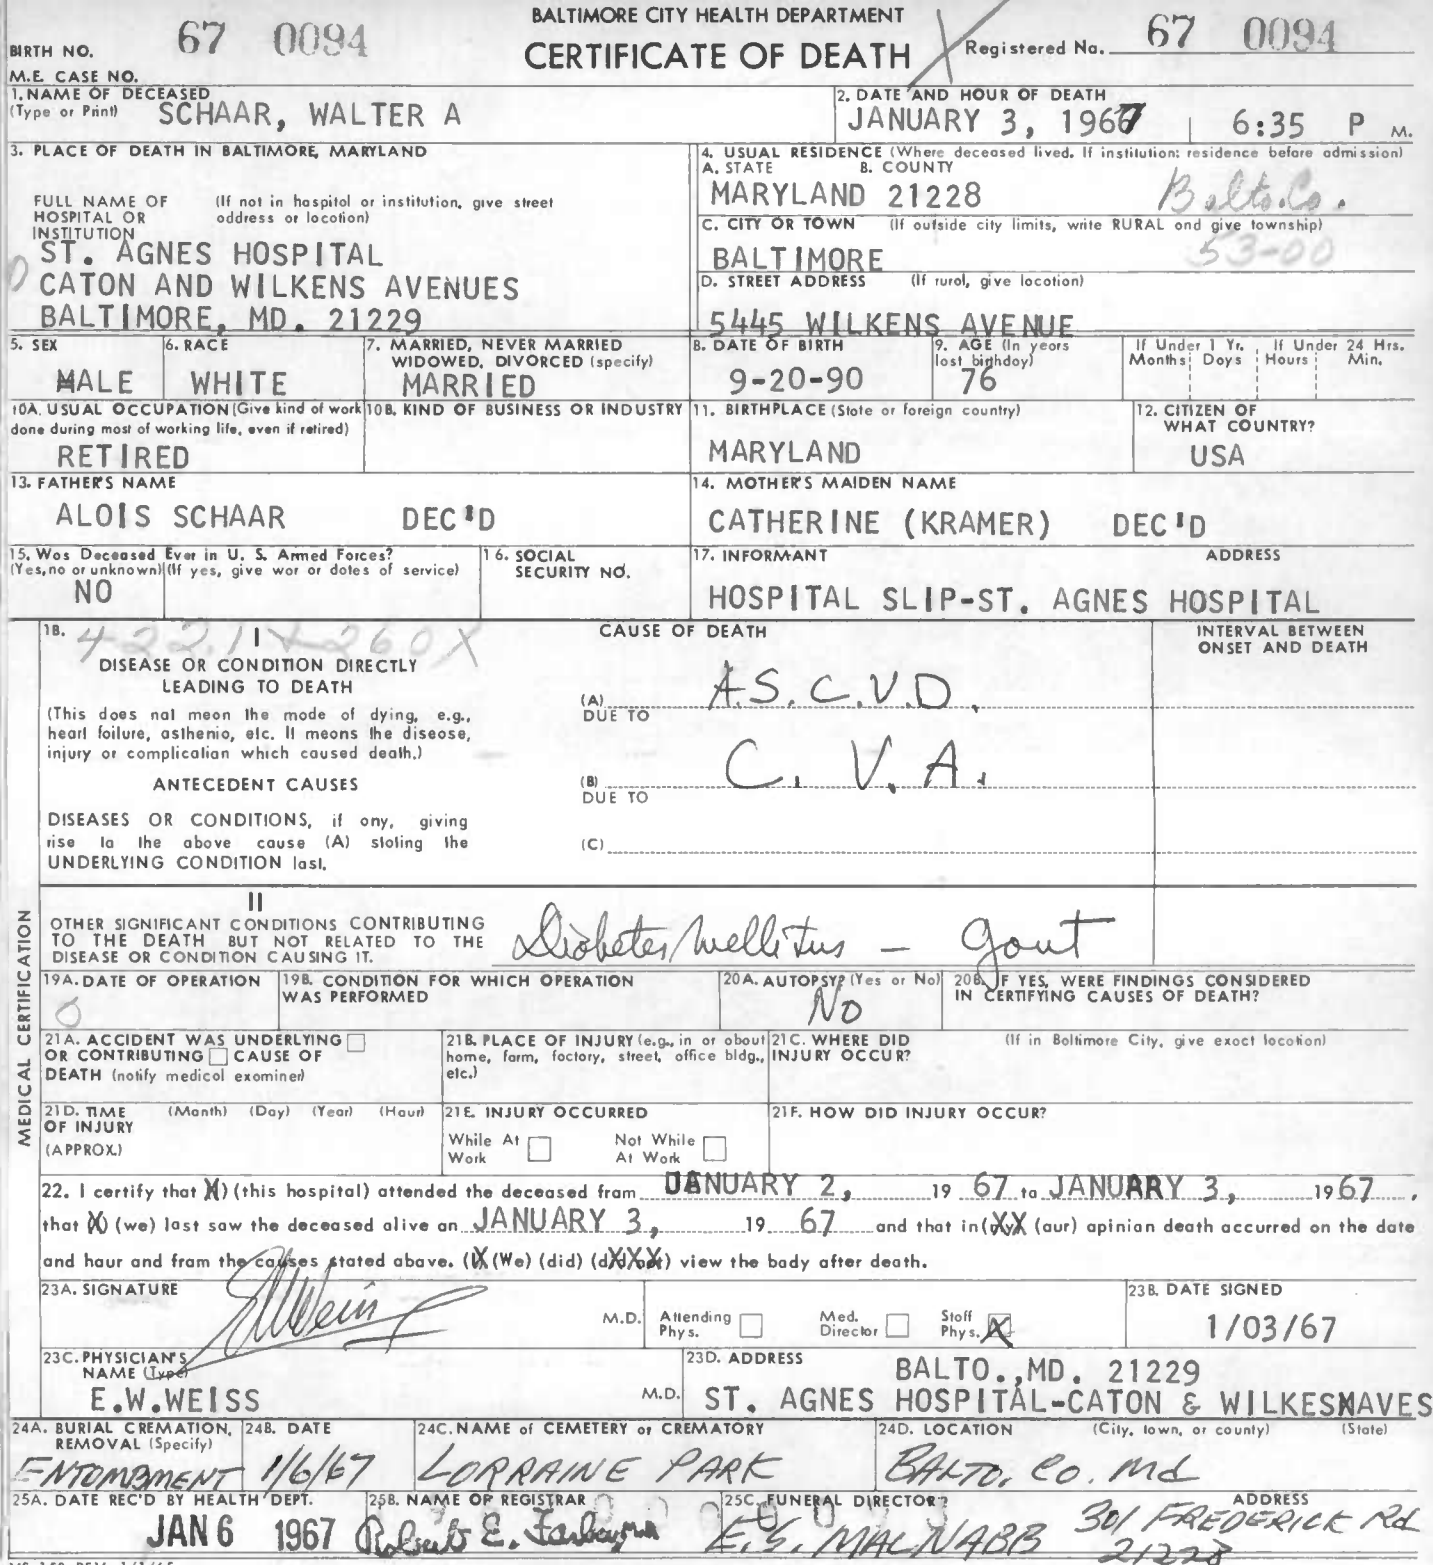 BALTIMORE CITY HEALTH DEPARTMENT
CERTIFICATE OF DEATH
BIRTH NO. 67 0094
Registered No. 67 0094
M.E. CASE NO.
1. NAME OF DECEASED
(Type or Print) SCHAAR, WALTER A
2. DATE AND HOUR OF DEATH
JANUARY 3, 1967 6:35 P M.
3. PLACE OF DEATH IN BALTIMORE, MARYLAND
FULL NAME OF HOSPITAL OR INSTITUTION
(If not in hospital or institution, give street address or location)
ST. AGNES HOSPITAL
CATON AND WILKENS AVENUES
BALTIMORE, MD. 21229
4. USUAL RESIDENCE (Where deceased lived. If institution: residence before admission)
A. STATE B. COUNTY
MARYLAND 21228 Balto. Co.
C. CITY OR TOWN (If outside city limits, write RURAL and give township)
BALTIMORE 53-00
D. STREET ADDRESS (If rural, give location)
5445 WILKENS AVENUE
5. SEX
MALE
6. RACE
WHITE
7. MARRIED, NEVER MARRIED
WIDOWED, DIVORCED (specify)
MARRIED
8. DATE OF BIRTH
9-20-90
9. AGE (In years
last birthday)
76
If Under 1 Yr.
Months Days
If Under 24 Hrs.
Hours Min.
10A. USUAL OCCUPATION (Give kind of work
done during most of working life, even if retired)
RETIRED
10B. KIND OF BUSINESS OR INDUSTRY
11. BIRTHPLACE (State or foreign country)
MARYLAND
12. CITIZEN OF
WHAT COUNTRY?
USA
13. FATHER'S NAME
ALOIS SCHAAR DEC'D
14. MOTHER'S MAIDEN NAME
CATHERINE (KRAMER) DEC'D
15. Was Deceased Ever in U. S. Armed Forces?
(Yes, no or unknown) (If yes, give war or dates of service)
NO
16. SOCIAL
SECURITY NO.
17. INFORMANT ADDRESS
HOSPITAL SLIP-ST. AGNES HOSPITAL
MEDICAL CERTIFICATION
18. 422.1 + 260X
I
DISEASE OR CONDITION DIRECTLY
LEADING TO DEATH
(This does not mean the mode of dying, e.g.,
heart failure, asthenia, etc. It means the disease,
injury or complication which caused death.)
ANTECEDENT CAUSES
DISEASES OR CONDITIONS, if any, giving
rise to the above cause (A) stating the
UNDERLYING CONDITION last.
CAUSE OF DEATH
INTERVAL BETWEEN
ONSET AND DEATH
(A) A.S.C.V.D.
DUE TO
(B) C. V. A.
DUE TO
(C)
II
OTHER SIGNIFICANT CONDITIONS CONTRIBUTING
TO THE DEATH BUT NOT RELATED TO THE
DISEASE OR CONDITION CAUSING IT.
Diabetes Mellitus - Gout
19A. DATE OF OPERATION
0
19B. CONDITION FOR WHICH OPERATION
WAS PERFORMED
20A. AUTOPSY? (Yes or No)
No
20B. IF YES, WERE FINDINGS CONSIDERED
IN CERTIFYING CAUSES OF DEATH?
21A. ACCIDENT WAS UNDERLYING
OR CONTRIBUTING CAUSE OF
DEATH (notify medical examiner)
21B. PLACE OF INJURY (e.g., in or about
home, farm, factory, street, office bldg.,
etc.)
21C. WHERE DID (If in Baltimore City, give exact location)
INJURY OCCUR?
21D. TIME (Month) (Day) (Year) (Hour)
OF INJURY
(APPROX.)
21E. INJURY OCCURRED
While At
Work
Not While
At Work
21F. HOW DID INJURY OCCUR?
22. I certify that (X) (this hospital) attended the deceased from JANUARY 2, 19 67 to JANUARY 3, 1967,
that (X) (we) last saw the deceased alive on JANUARY 3, 19 67 and that in (my) (our) opinion death accurred on the date
and hour and from the causes stated above. (X) (We) (did) (did not) view the body after death.
23A. SIGNATURE
EWWeiss M.D.
Attending
Phys.
Med.
Director
Staff
Phys. X
23B. DATE SIGNED
1/03/67
23C. PHYSICIAN'S
NAME (Type)
E.W.WEISS M.D.
23D. ADDRESS BALTO.,MD. 21229
ST. AGNES HOSPITAL-CATON & WILKESNAVES
24A. BURIAL CREMATION,
REMOVAL (Specify)
ENTOMBMENT
24B. DATE
1/6/67
24C. NAME of CEMETERY or CREMATORY
LORRAINE PARK
24D. LOCATION (City, town, or county) (State)
BALTO. CO. Md
25A. DATE REC'D BY HEALTH DEPT.
JAN 6 1967
25B. NAME OF REGISTRAR
Robert E. Farber, MD
25C. FUNERAL DIRECTOR ADDRESS
E.S. MACNABB 301 FREDERICK Rd
21228